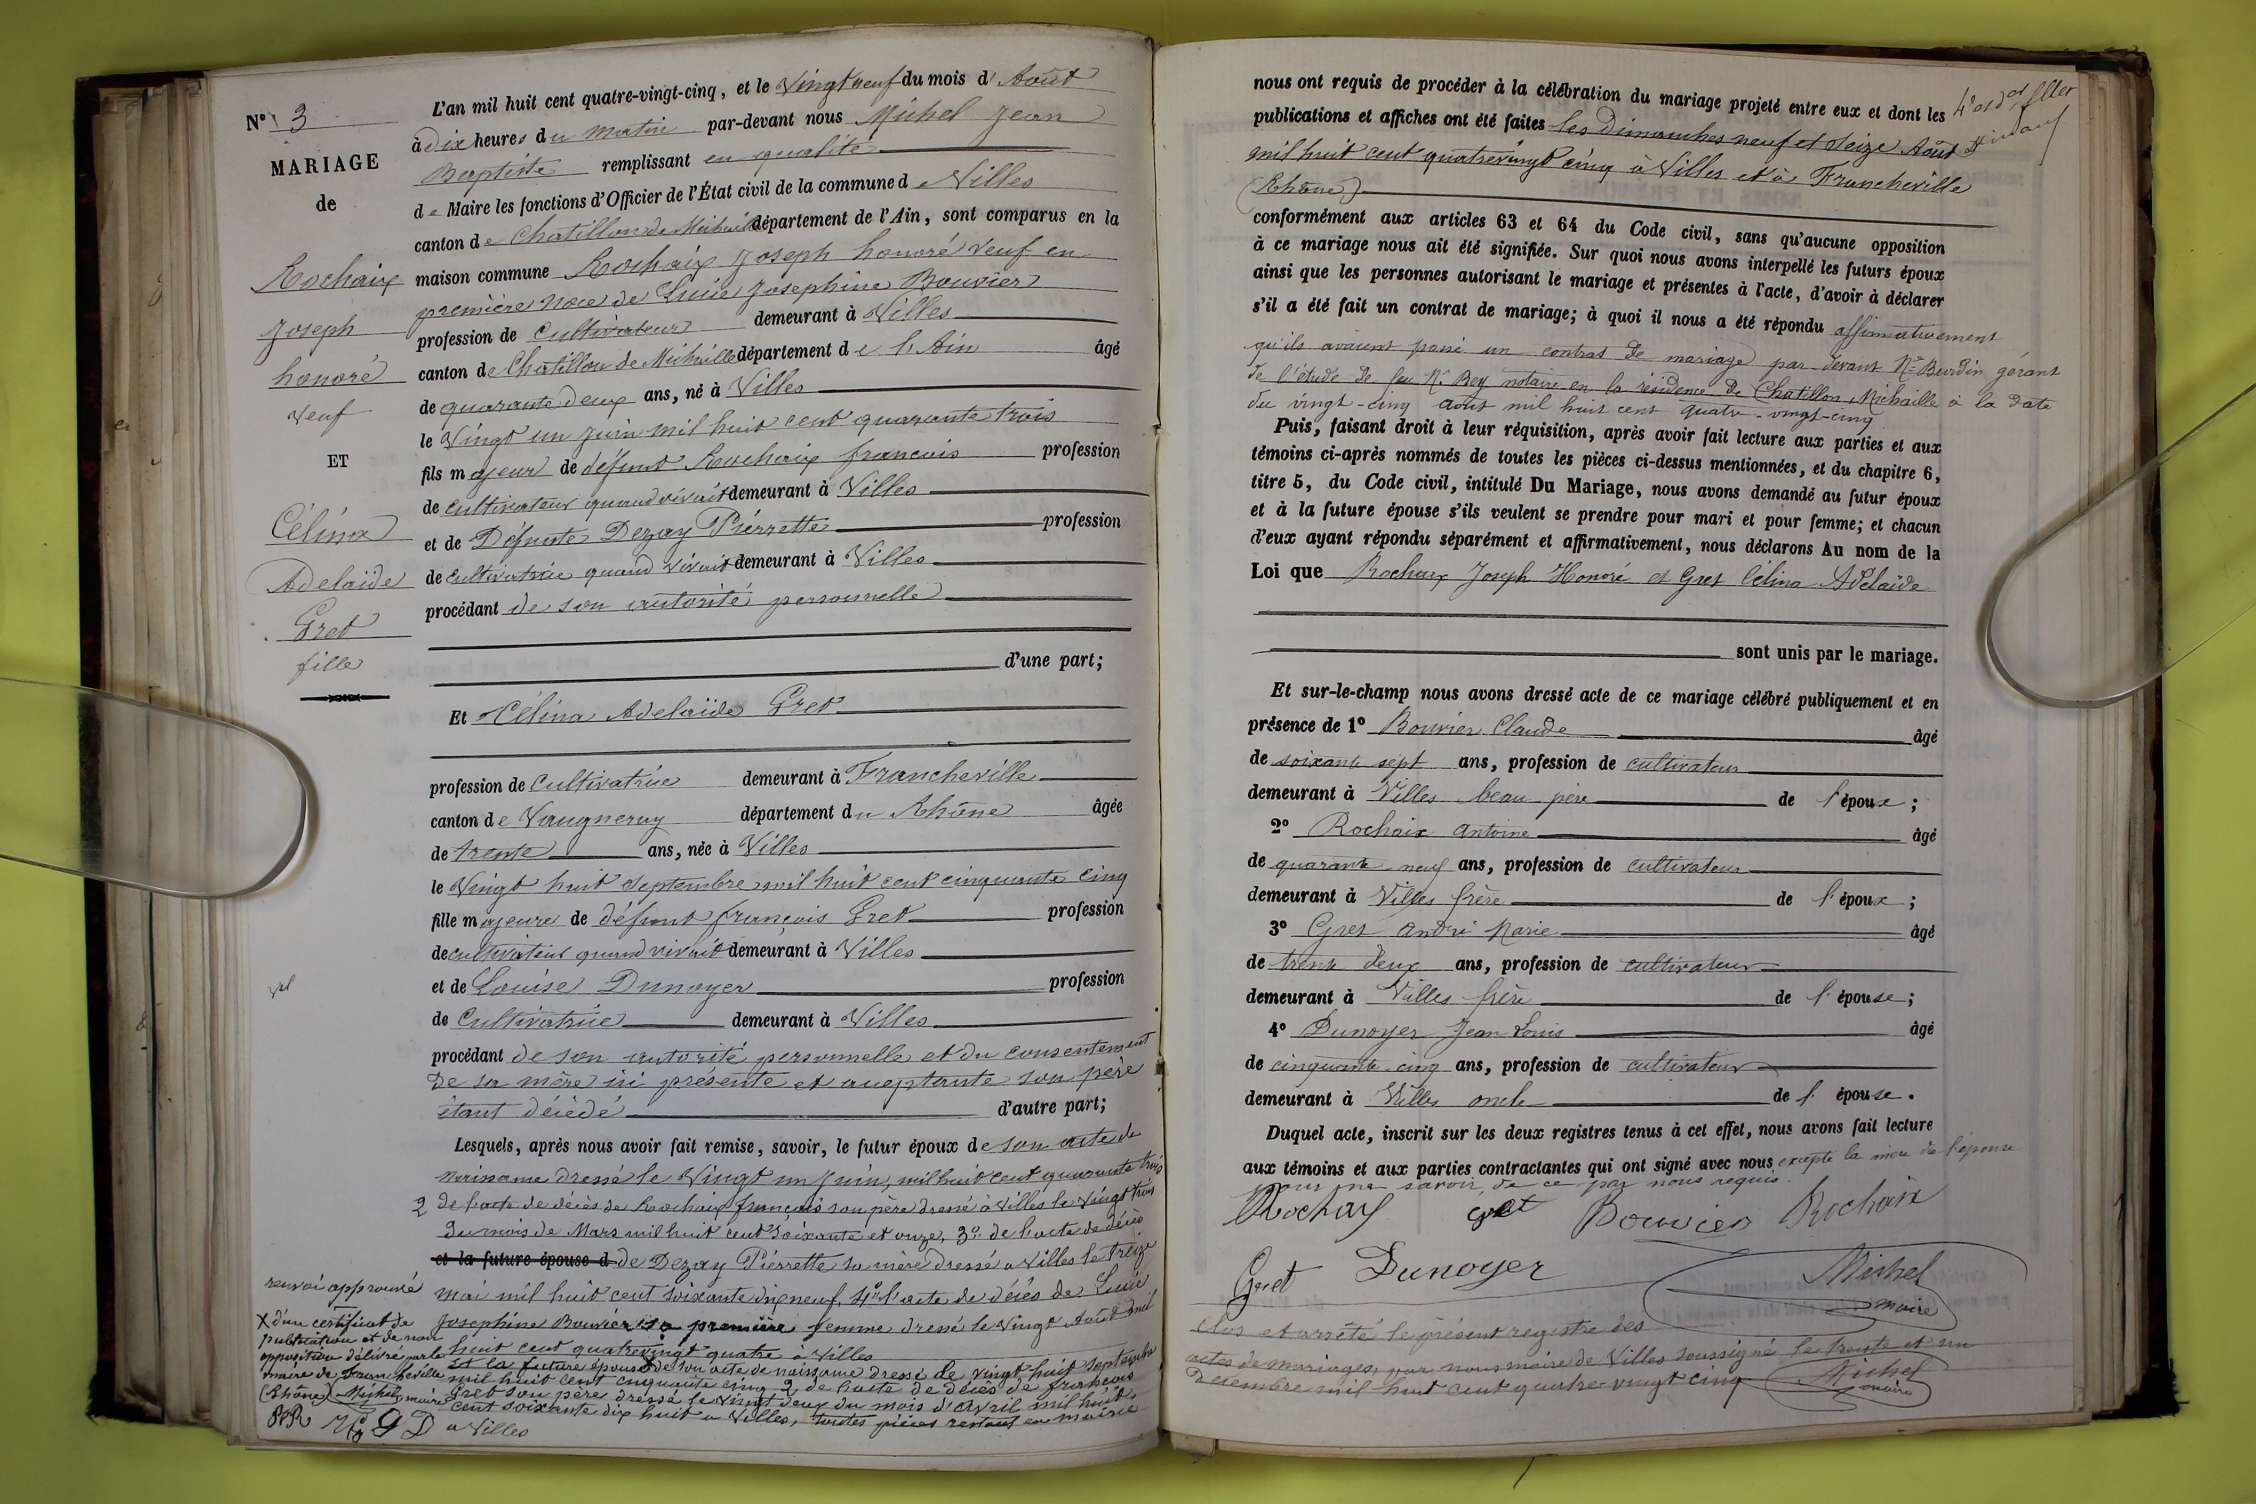 N° 3
MARIAGE
de
Rochaix
Joseph
honoré
veuf
ET
Célina
Adelaïde
Gret
fille
L'an mil huit cent quatre-vingt-cinq, et le Vingt neuf du mois d'Août
à dix heures du matin par-devant nous Michel Jean
Baptiste remplissant en qualité
de Maire les fonctions d'Officier de l'État civil de la commune de Villes
canton de Chatillon de Michaille département de l'Ain, sont comparus en la
maison commune Rochaix Joseph honoré veuf en
première noce de Lucie Josephine Bouvier
profession de cultivateur demeurant à Villes
canton de Chatillon de Michaille département de l'Ain âgé
de quarante deux ans, né à Villes
le Vingt un Juin mil huit cent quarante trois
fils majeur de défunt Rochaix francois profession
de cultivateur quand vivait demeurant à Villes
et de Défunte Dezay Piérrette profession
de cultivatrice quand vivait demeurant à Villes
procédant de son autorité personnelle
d'une part;
Et Célina Adelaïde Gret
profession de Cultivatrice demeurant à Francheville
canton de Vaugneray département du Rhône âgée
de trente ans, née à Villes
le Vingt huit Septembre mil huit cent cinquante cinq
fille majeure de défunt françois Gret profession
de cultivateur quand vivait demeurant à Villes
et de Louise Dunoyer profession
de Cultivatrice demeurant à Villes
procédant de son autorité personnelle et du consentement
de sa mère ici présente et acceptante son père
étant décédé d'autre part;
Lesquels, après nous avoir fait remise, savoir, le futur époux de son acte de
naissance dressé le Vingt un Juin, mil huit cent quarante trois
2 de l'acte de décès de Rochaix françois son père dressé à Villes le Vingt trois
du mois de Mars mil huit cent soixante et onze, 3° de l'acte de décès
et la future épouse d de Dezay Piérrette sa mère dressé à Villes le treize
mai mil huit cent soixante dix neuf, 4° l'acte de décès de Lucie
Josephine Bouvier sa première femme dressé le Vingt Août mil
huit cent quatrevingt quatre à Villes
et la future épouse X de son acte de naissance dressé le vingt huit septembre
mil huit cent cinquante cinq 2 de l'acte de décès de françois
Gret son père dressé le vingt deux du mois d'Avril mil huit
cent soixante dix huit à Villes, toutes pièces restant en mairie
à Villes
renvoi approuvé
X d'un certificat de
publication et de non
opposition délivré par le
maire de Francheville
(Rhône) Michel, maire
nous ont requis de procéder à la célébration du mariage projeté entre eux et dont les
publications et affiches ont été faites les Dimanches neuf et seize Août
mil huit cent quatrevingt cinq à Villes et à Francheville
(Rhône)
conformément aux articles 63 et 64 du Code civil, sans qu'aucune opposition
à ce mariage nous ait été signifiée. Sur quoi nous avons interpellé les futurs époux
ainsi que les personnes autorisant le mariage et présentes à l'acte, d'avoir à déclarer
s'il a été fait un contrat de mariage; à quoi il nous a été répondu affirmativement
qu'ils avaient passé un contrat de mariage par devant Me Burdin gérant
de l'étude de feu Me Bey notaire en la résidence de Chatillon, Michaille à la date
du vingt-cinq août mil huit cent quatre-vingt-cinq
Puis, faisant droit à leur réquisition, après avoir fait lecture aux parties et aux
témoins ci-après nommés de toutes les pièces ci-dessus mentionnées, et du chapitre 6,
titre 5, du Code civil, intitulé Du Mariage, nous avons demandé au futur époux
et à la future épouse s'ils veulent se prendre pour mari et pour femme; et chacun
d'eux ayant répondu séparément et affirmativement, nous déclarons Au nom de la
Loi que Rochaix Joseph Honoré et Gret Célina Adélaïde
sont unis par le mariage.
Et sur-le-champ nous avons dressé acte de ce mariage célébré publiquement et en
présence de 1° Bouvier Claude âgé
de soixante sept ans, profession de cultivateur
demeurant à Villes beau-père de l'époux;
2° Rochaix Antoine âgé
de quarante-neuf ans, profession de cultivateur
demeurant à Villes frère de l'époux;
3° Gret André Marie âgé
de trente deux ans, profession de cultivateur
demeurant à Villes frère de l'épouse;
4° Dunoyer Jean Louis âgé
de cinquante-cinq ans, profession de cultivateur
demeurant à Villes oncle de l'épouse.
Duquel acte, inscrit sur les deux registres tenus à cet effet, nous avons fait lecture
aux témoins et aux parties contractantes qui ont signé avec nous excepté la mère de l'épouse
pour ne savoir, de ce par nous requis.
Rochaix Gret Bouvier Rochaix
Gret Dunoyer Michel
maire
Clos et arrêté le présent registre des
actes de mariages, par nous maire de Villes soussigné le trente et un
Décembre mil huit cent quatre-vingt cinq Michel
maire